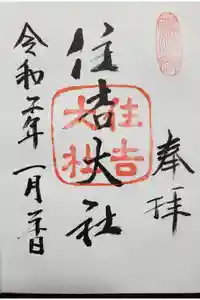 奉拝
住吉大社
住吉
大社
令和二年一月日